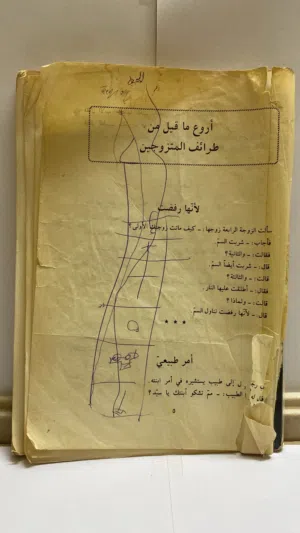 أروع ما قيل من
طرائف المتزوجين
لأنها رفضت
سألت الزوجة الرابعة زوجها: - كيف ماتت زوجتك الأولى؟
فأجاب: - شربت السمّ.
فقالت: - والثانية؟
قال: - شربت أيضاً السمّ.
قالت: - والثالثة؟
فقال: - أطلقت عليها النار.
قالت: - ولماذا؟
قال: - لأنها رفضت تناول السمّ.
***
أمر طبيعي
إلى طبيب يستشيره في أمر ابنته.
الطبيب: - ممّ تشكو ابنتك يا سيّد؟
٥